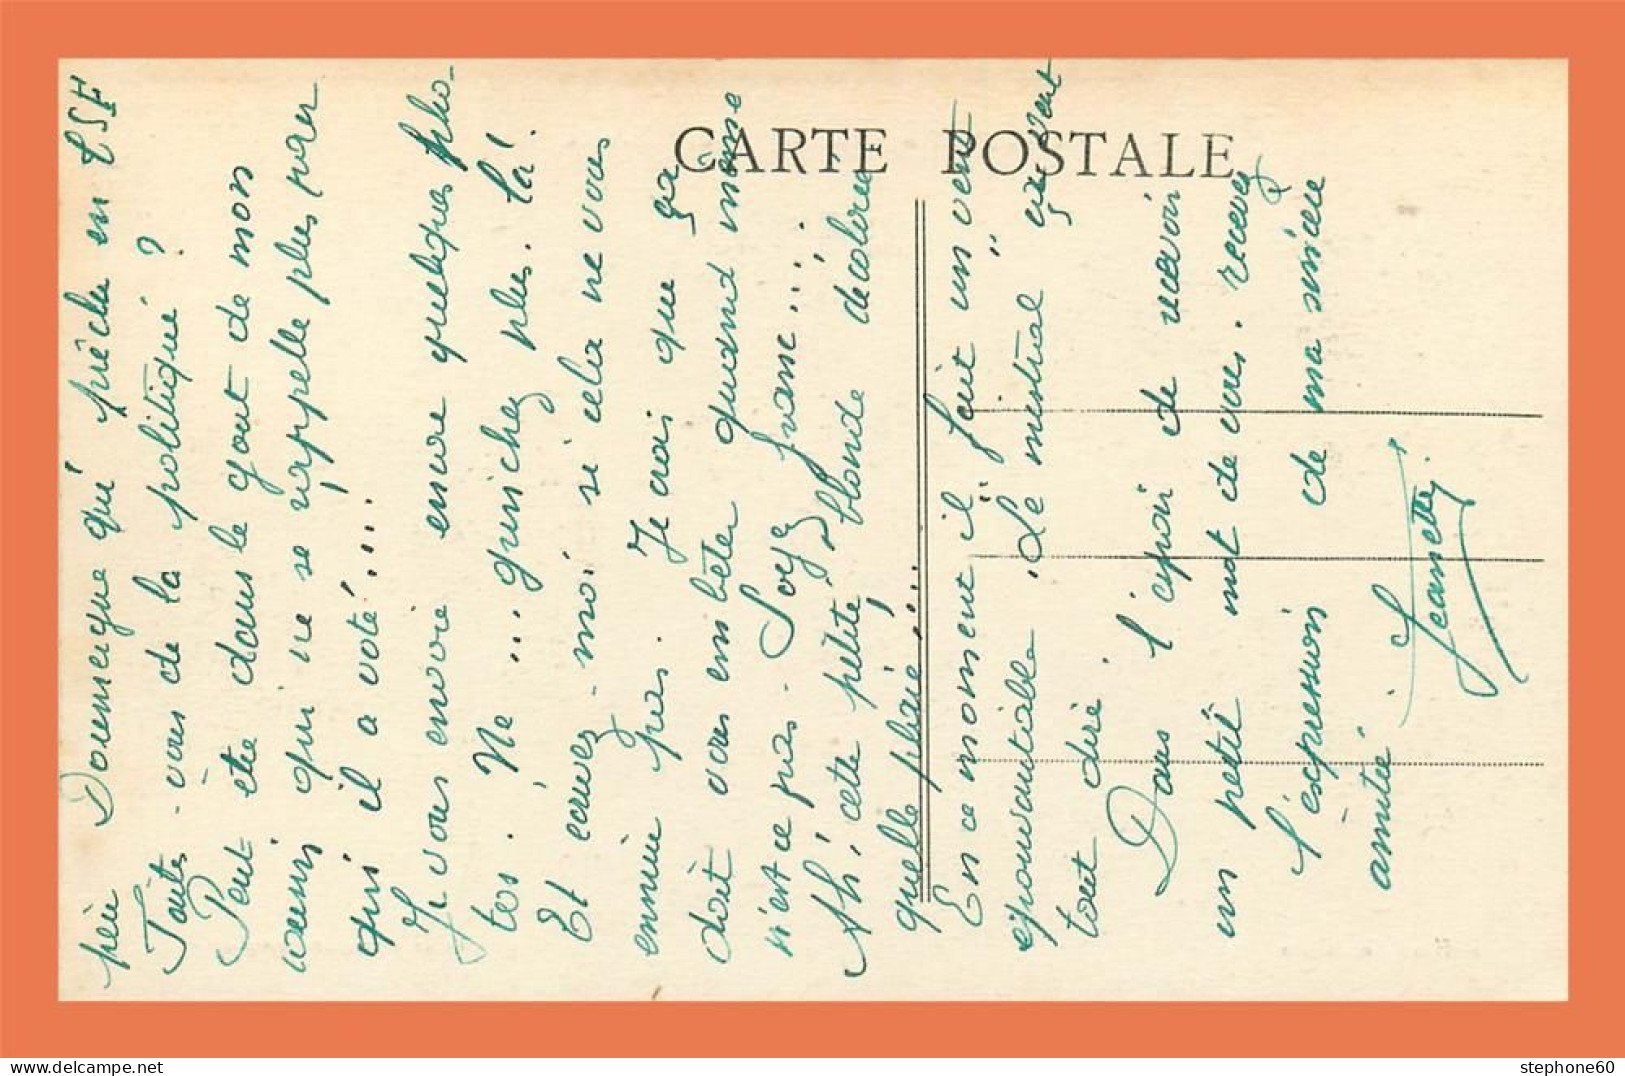 CARTE POSTALE
père Doumergue qui prêche en TSF
Faites-vous de la politique ?
Peut être dans le gout de mon
cousin qui ne se rappelle plus pour
qui il a voté....
Je vous envoie encore quelques pho-
tos. Ne ... guinchez plus. là!
Et écrivez-moi si cela ne vous
ennuie pas. Je crois que ça
doit vous embêter quand même
n'est ce pas. Soyez franc....
Ah, cette petite blonde décolorée
quelle plaie!...
En ce moment il fait un vent
épouvantable. Le mistral ça veut
tout dire
Dans l'espoir de recevoir
un petit mot de vous. recevez
l'expression de ma sincère
amitié
Jeannette
stephone60